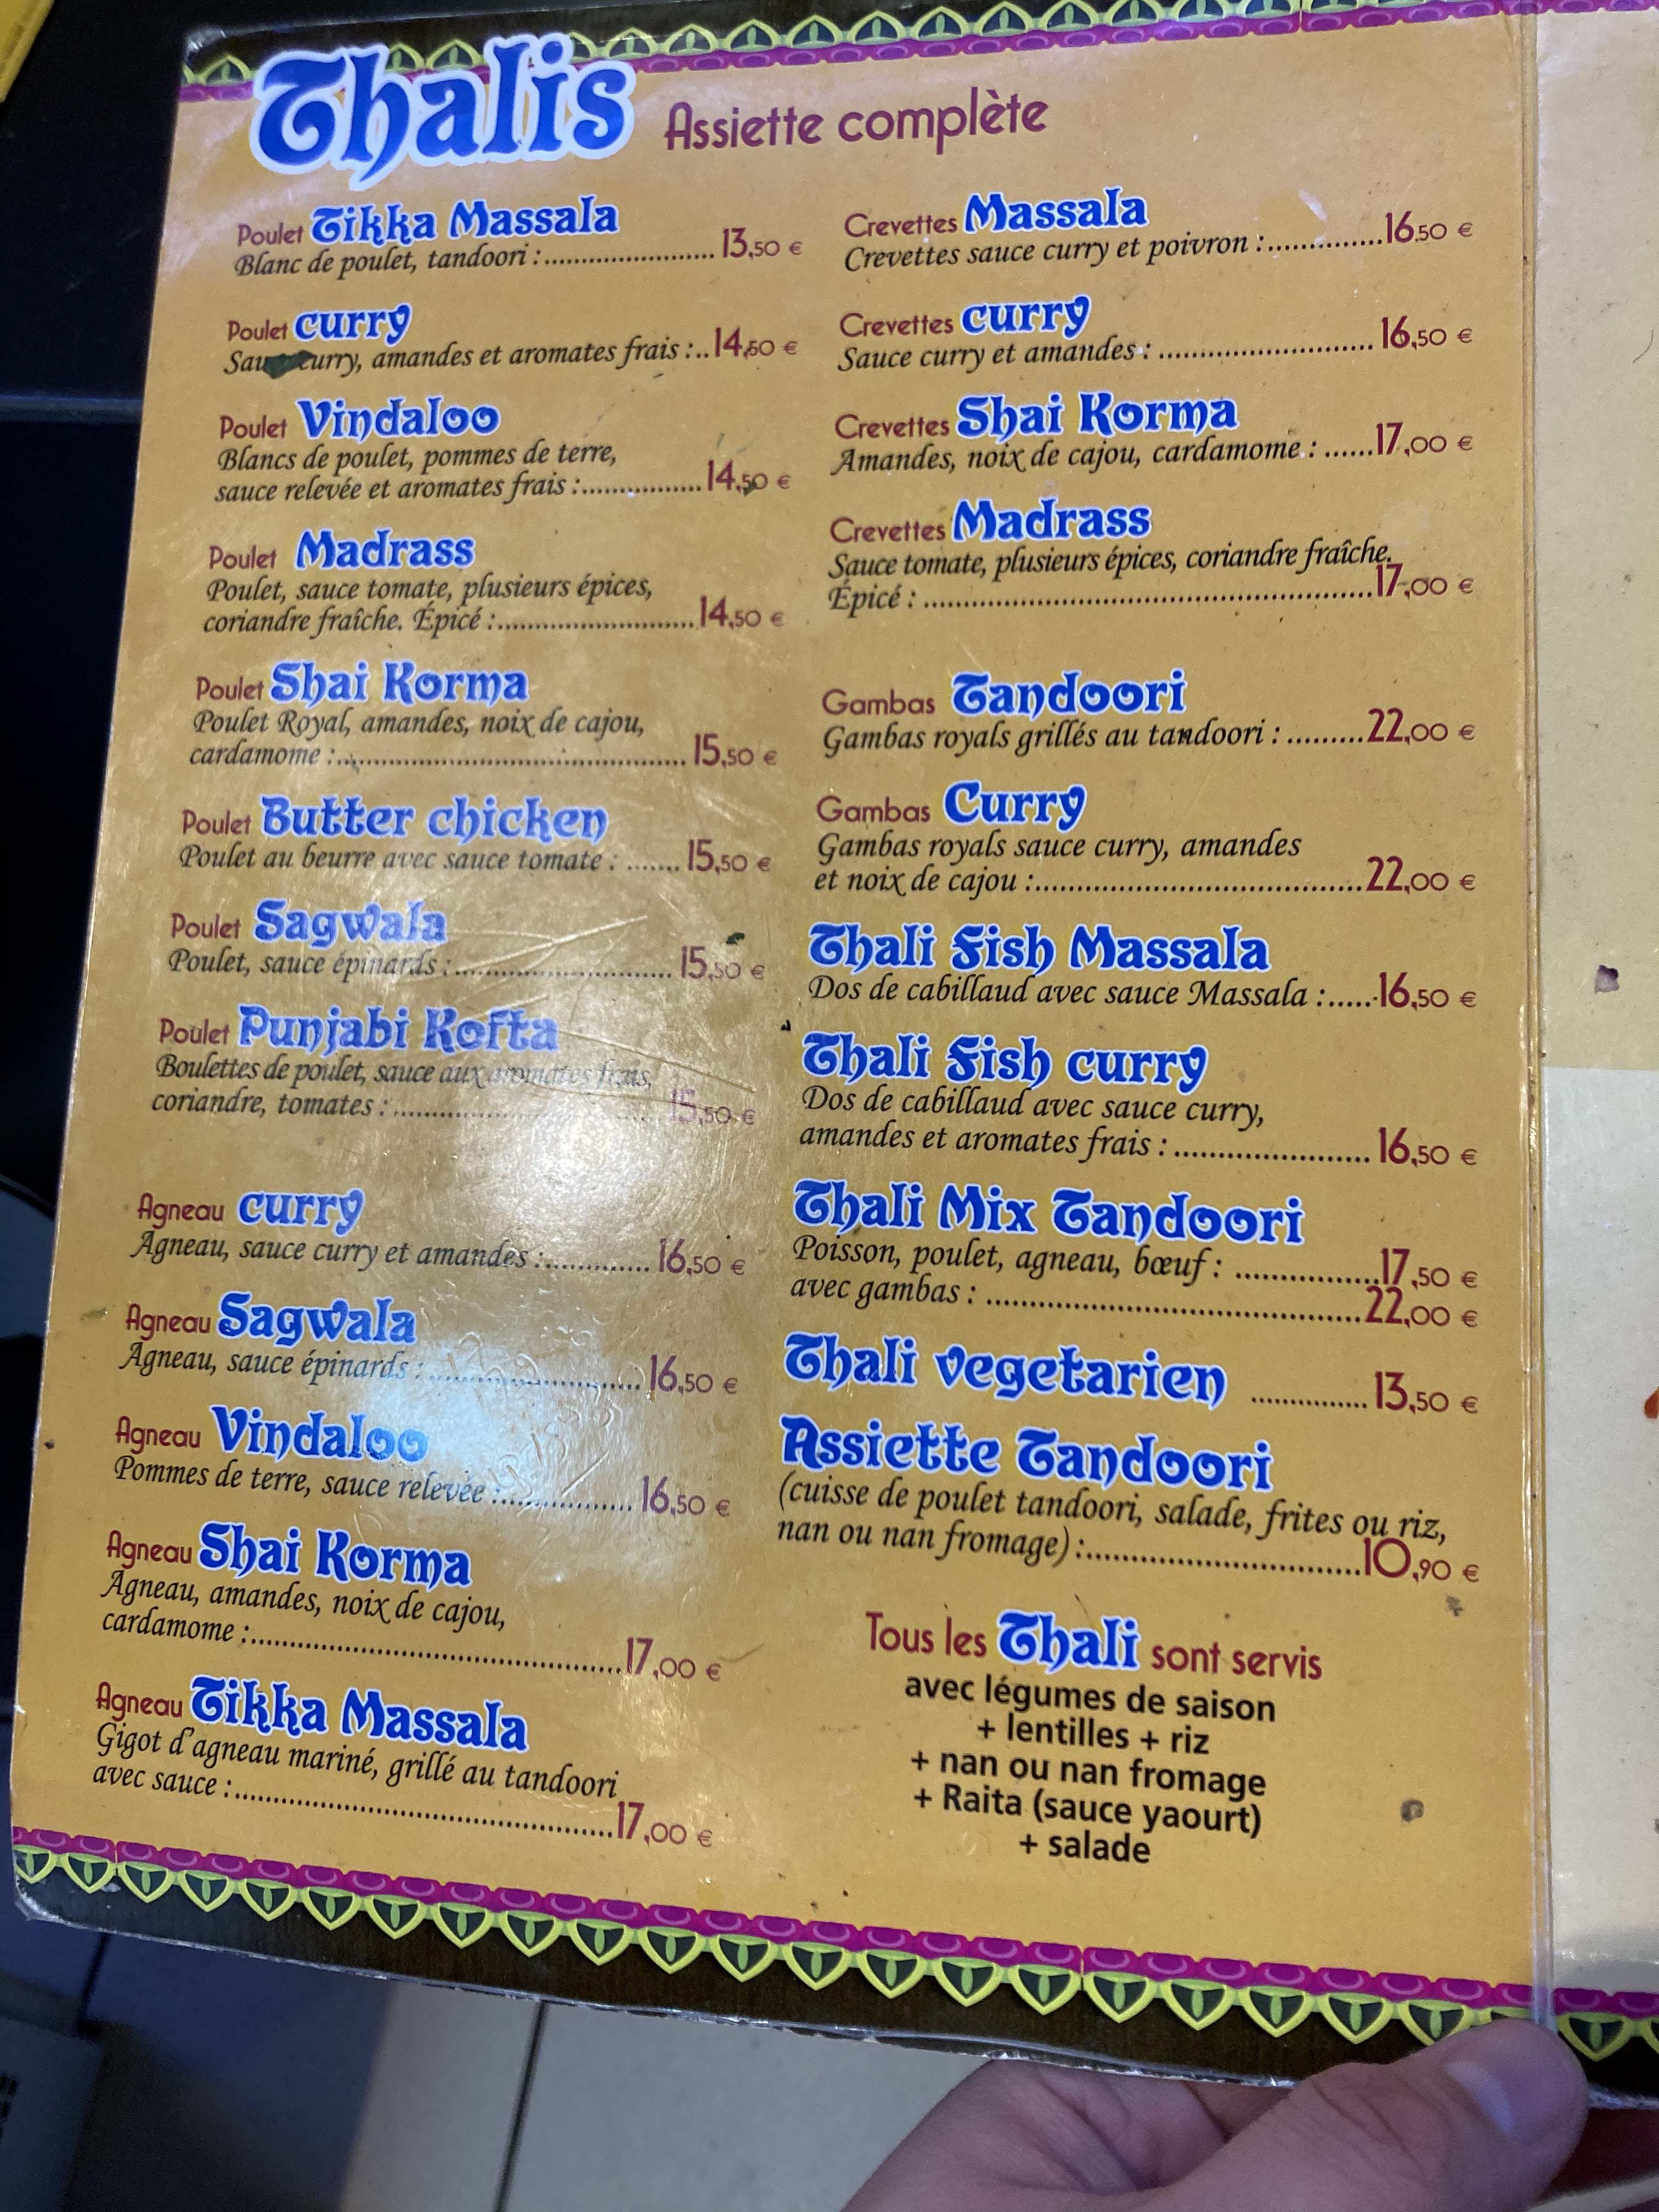 Thalis Assiette complète
Poulet Tikka Massala
Blanc de poulet, tandoori :........................ 13,50 €
Poulet curry
Sauce curry, amandes et aromates frais :.. 14,50 €
Poulet Vindaloo
Blancs de poulet, pommes de terre,
sauce relevée et aromates frais :................. 14,50 €
Poulet Madrass
Poulet, sauce tomate, plusieurs épices,
coriandre fraîche. Épicé :........................... 14,50 €
Poulet Shai Korma
Poulet Royal, amandes, noix de cajou,
cardamome :.............................................. 15,50 €
Poulet Butter chicken
Poulet au beurre avec sauce tomate : ....... 15,50 €
Poulet Sagwala
Poulet, sauce épinards :............................. 15,50 €
Poulet Punjabi Kofta
Boulettes de poulet, sauce aux aromates frais,
coriandre, tomates : .................................. 15,50 €
Agneau curry
Agneau, sauce curry et amandes :.............. 16,50 €
Agneau Sagwala
Agneau, sauce épinards : ........................... 16,50 €
Agneau Vindaloo
Pommes de terre, sauce relevée :.................. 16,50 €
Agneau Shai Korma
Agneau, amandes, noix de cajou,
cardamome :................................................ 17,00 €
Agneau Tikka Massala
Gigot d'agneau mariné, grillé au tandoori
avec sauce :................................................. 17,00 €
Crevettes Massala
Crevettes sauce curry et poivron :............... 16,50 €
Crevettes curry
Sauce curry et amandes : ............................ 16,50 €
Crevettes Shai Korma
Amandes, noix de cajou, cardamome : ...... 17,00 €
Crevettes Madrass
Sauce tomate, plusieurs épices, coriandre fraîche.
Épicé : .......................................................... 17,00 €
Gambas Tandoori
Gambas royals grillés au tandoori : ......... 22,00 €
Gambas Curry
Gambas royals sauce curry, amandes
et noix de cajou :.......................................... 22,00 €
Thali Fish Massala
Dos de cabillaud avec sauce Massala :...... 16,50 €
Thali Fish curry
Dos de cabillaud avec sauce curry,
amandes et aromates frais : ......................... 16,50 €
Thali Mix Tandoori
Poisson, poulet, agneau, bœuf : .................. 17,50 €
avec gambas : ................................................ 22,00 €
Thali vegetarien ............... 13,50 €
Assiette Tandoori
(cuisse de poulet tandoori, salade, frites ou riz,
nan ou nan fromage) :................................... 10,90 €
Tous les Thali sont servis
avec légumes de saison
+ lentilles + riz
+ nan ou nan fromage
+ Raita (sauce yaourt)
+ salade